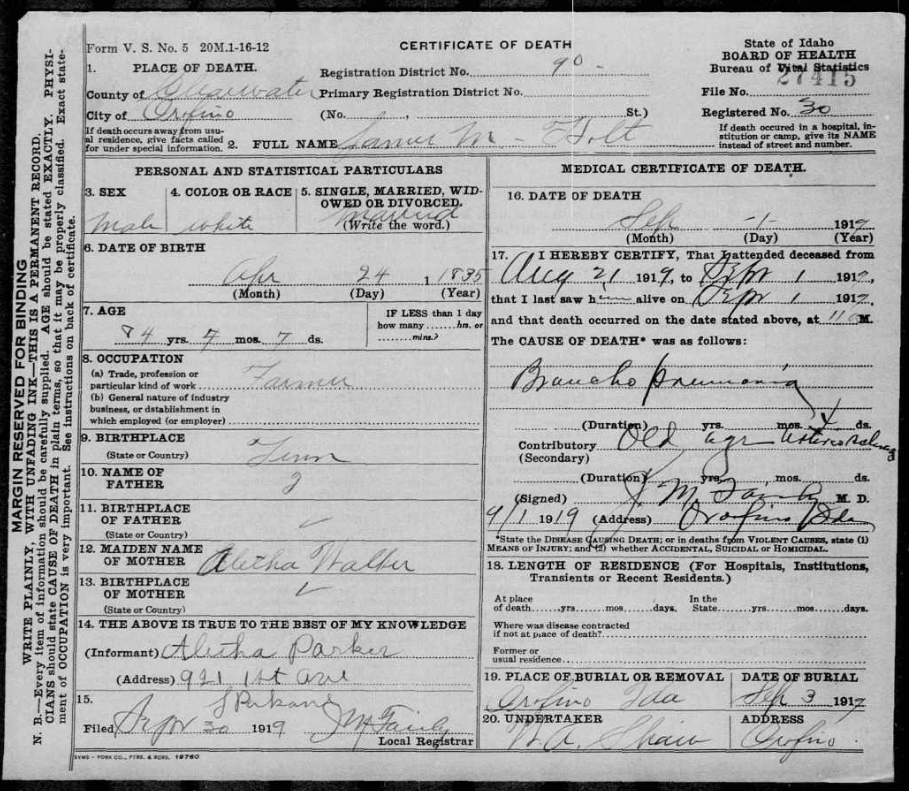 Form V. S. No. 5 20M.1-16-12
CERTIFICATE OF DEATH
State of Idaho
BOARD OF HEALTH
Bureau of Vital Statistics
27415
File No.
Registered No. 30
If death occured in a hospital, in-
stitution or camp, give its NAME
instead of street and number.
1. PLACE OF DEATH.
County of Clearwater
City of Orofino
If death occurs away from usu-
al residence, give facts called
for under special information.
Registration District No. 90
Primary Registration District No.
(No. , St.)
2. FULL NAME James M Holt
PERSONAL AND STATISTICAL PARTICULARS
3. SEX
Male
4. COLOR OR RACE
white
5. SINGLE, MARRIED, WID-
OWED OR DIVORCED.
Married
(Write the word.)
6. DATE OF BIRTH
Apr 24 , 1835
(Month) (Day) (Year)
7. AGE
84 yrs. 7 mos. 7 ds.
IF LESS than 1 day
how many ....... hrs. or
....... mins.?
8. OCCUPATION
(a) Trade, profession or
particular kind of work Farmer
(b) General nature of industry
business, or dstablishment in
which employed (or employer)
9. BIRTHPLACE
(State or Country) Tenn
10. NAME OF
FATHER ?
11. BIRTHPLACE
OF FATHER ✓
(State or Country)
12. MAIDEN NAME
OF MOTHER Aletha Walker
13. BIRTHPLACE
OF MOTHER ✓
(State or Country)
14. THE ABOVE IS TRUE TO THE BEST OF MY KNOWLEDGE
(Informant) Aletha Parker
(Address) 921 1st Ave
Spokane
15.
Filed Sept 30 1919 J M Fairly
Local Registrar
SYMS - YORK CO., PTRS. & BDRS. 19760
MEDICAL CERTIFICATE OF DEATH.
16. DATE OF DEATH
Sep 1 1919
(Month) (Day) (Year)
17. I HEREBY CERTIFY, That I attended deceased from
Aug 21 1919, to Sept 1 1919,
that I last saw him alive on Sept 1 1919.
and that death occurred on the date stated above, at M.
The CAUSE OF DEATH* was as follows:
Broncho pneumonia
(Duration) yrs. mos. ds.
Contributory Old age
(Secondary)
(Duration) yrs. mos. ds.
(Signed) J M Fairly M. D.
9/1 1919 (Address) Orofino Ida
*State the DISEASE CAUSING DEATH; or in deaths from VIOLENT CAUSES, state (1)
MEANS OF INJURY; and (2) whether ACCIDENTAL, SUICIDAL or HOMICIDAL.
18. LENGTH OF RESIDENCE (For Hospitals, Institutions,
Transients or Recent Residents.)
At place In the
of death......yrs......mos......days. State......yrs......mos......days.
Where was disease contracted
if not at place of death?
Former or
usual residence
19. PLACE OF BURIAL OR REMOVAL
Orofino Ida
DATE OF BURIAL
Sep 3 1919
20. UNDERTAKER
Shaw
ADDRESS
Orofino
MARGIN RESERVED FOR BINDING
WRITE PLAINLY, WITH UNFADING INK—THIS IS A PERMANENT RECORD.
N. B.—Every item of information should be carefully supplied. AGE should be stated EXACTLY. PHYSI-
CIANS should state CAUSE OF DEATH in plain terms, so that it may be properly classified. Exact state-
ment of OCCUPATION is very important. See instructions on back of certificate.